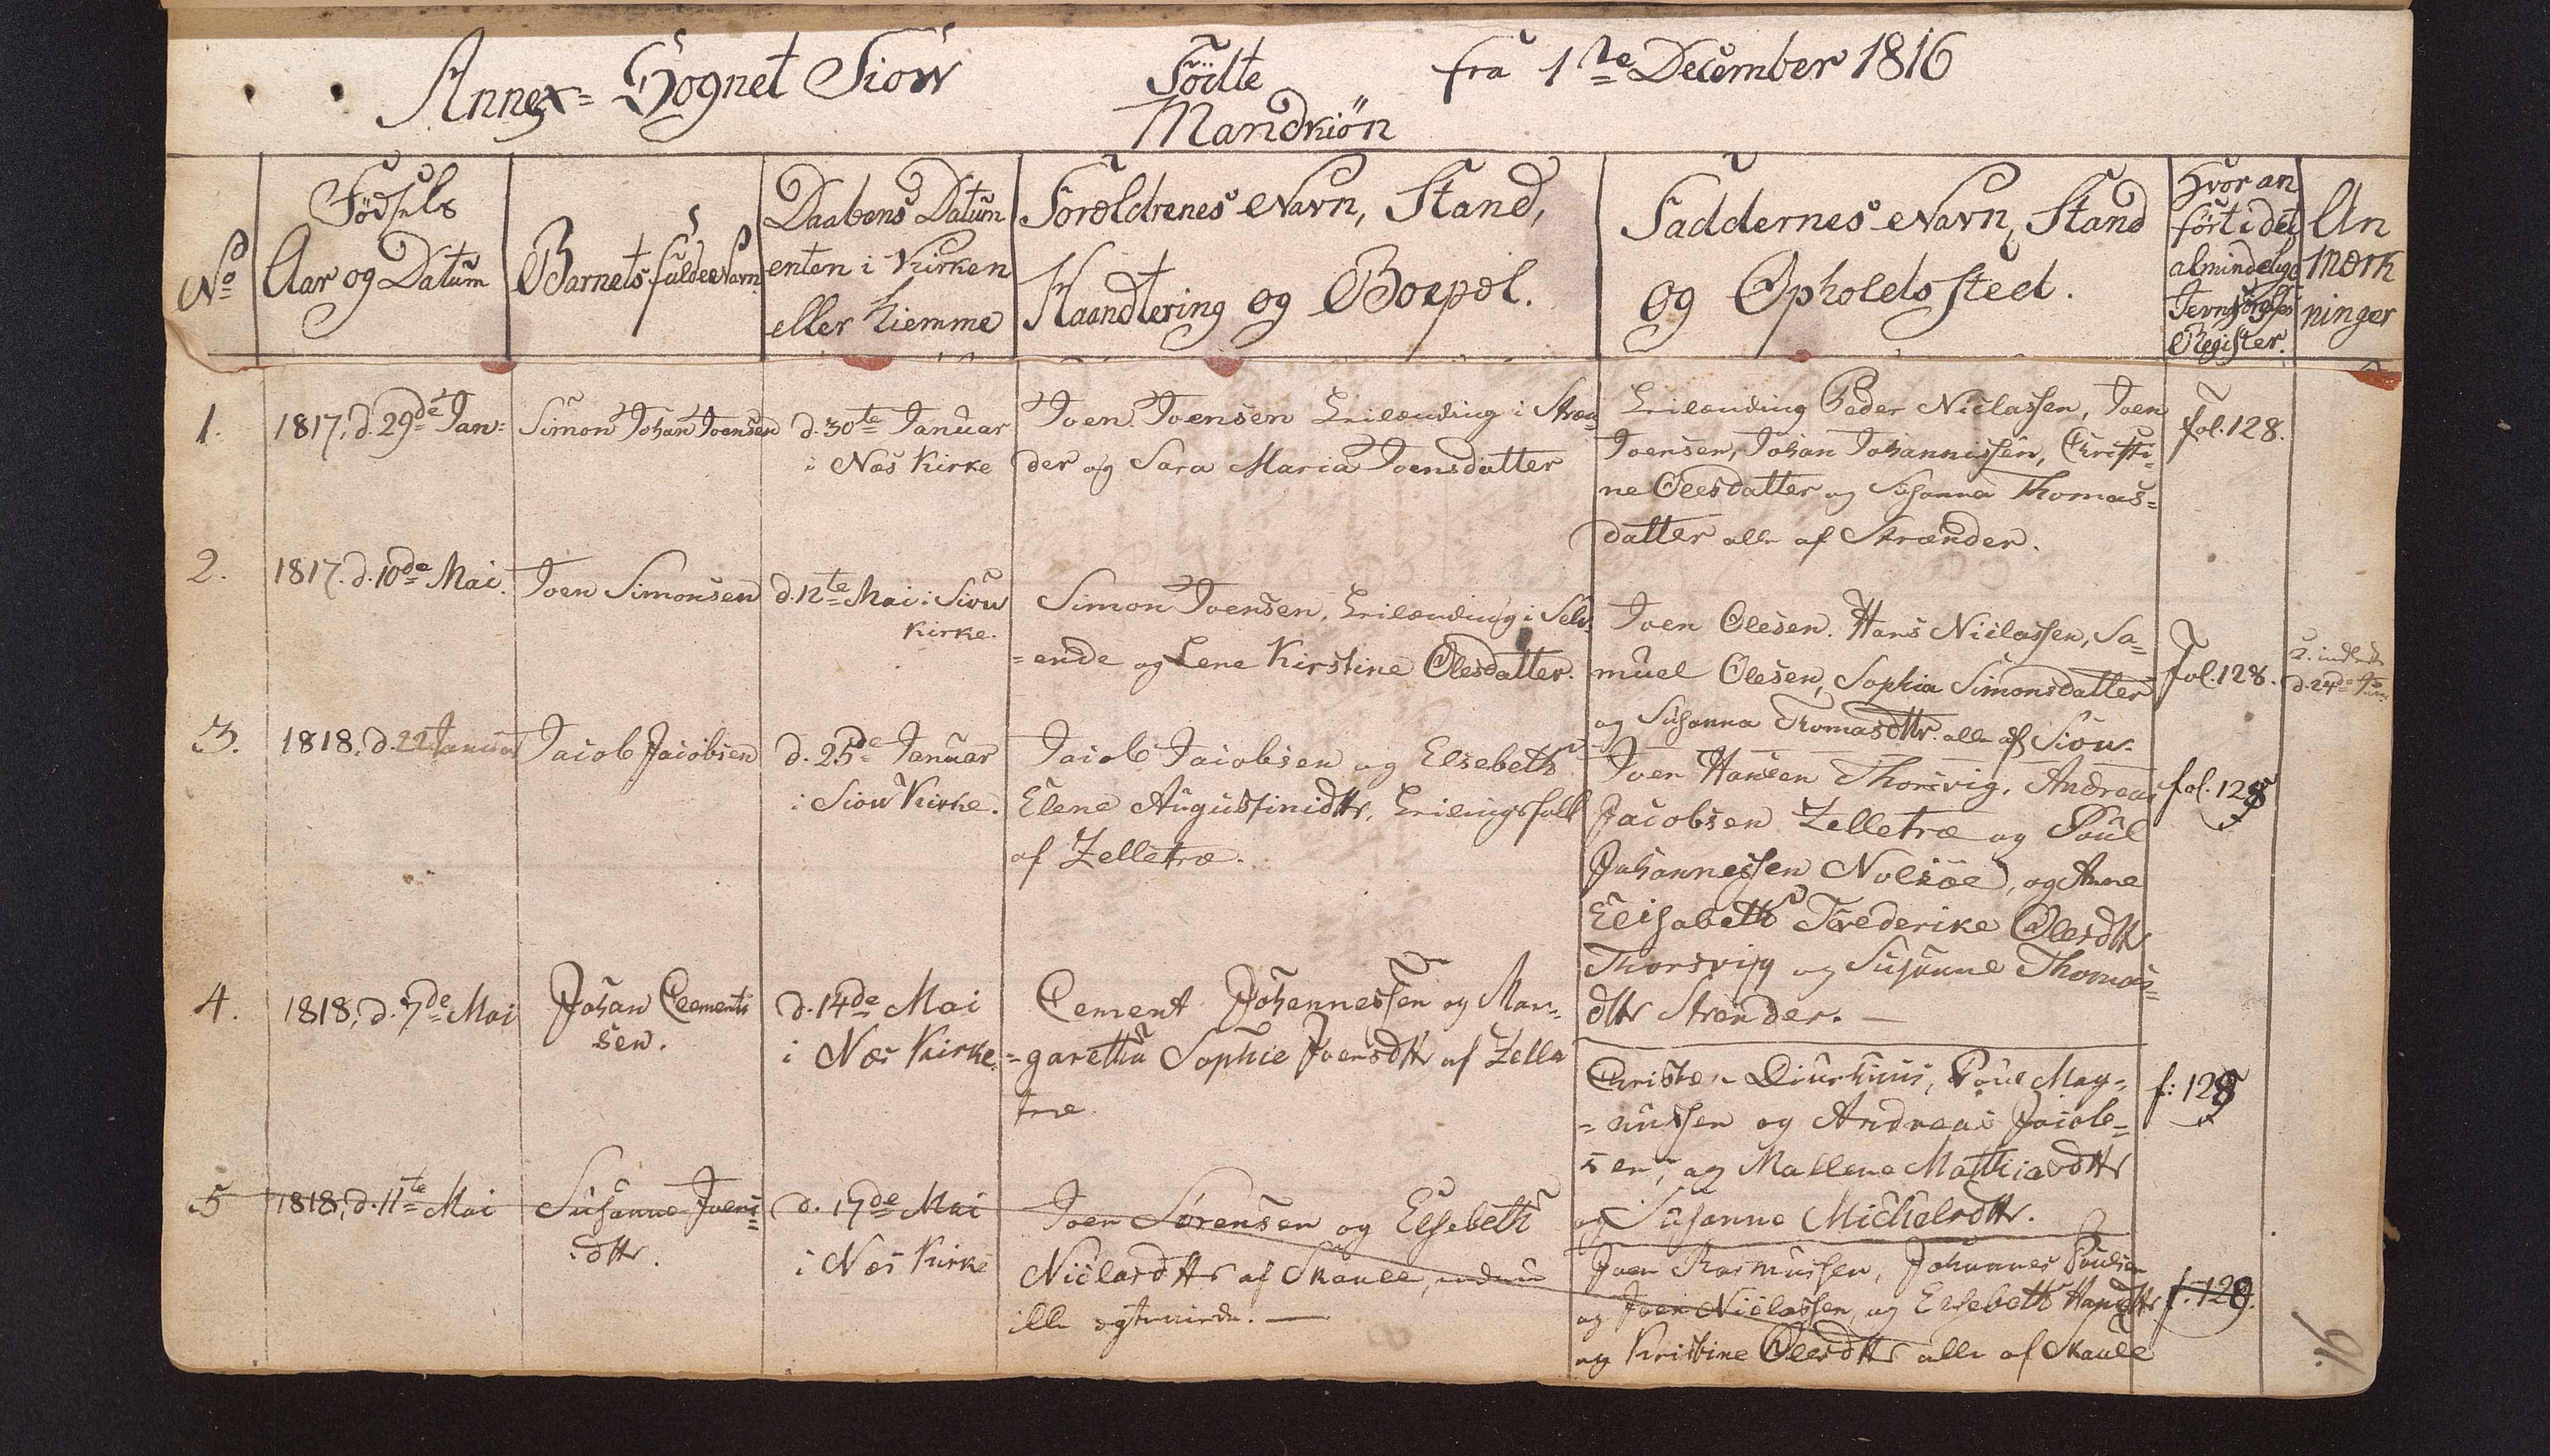 Annex= Sognet Siow
Födte
Mandkiön
fra 1ste December 1816
No
Födsels
Aar og Datum
Barnets fulde Navn
Daabens Datum
enten i Kirken
eller hiemme
Forældrenes Navn, Stand,
Haandtering og Boepæl.
Faddernes Navn, Stand
og Opholdssted.
Hvor an
fört i det
almindelige
Jevnförelses
Register.
An
mærk
ninger
1.
1817, d. 29de Jan:
Simon Johan Joensen
d. 30te Januar
i Næs Kirke
Joen Joensen Leilænding i Stræn
der og Sara Maria Joensdatter
Leilænding Peder Niclassen, Joen
Joensen, Johan Johannissen, Christi=
ne Olesdatter og Susanna Thomas=
datter alle af Strænder.
fol. 128.
2.
1817. d. 10de Mai.
Joen Simonsen
d. 12te Mai i Siow
Kirke.
Simon Joensen, Leilænding i Selv
=ende og Lene Kirstine Olesdatter.
Joen Olesen. Hans Niclassen, Sa=
muel Olesen, Sophia Simonsdatter
og Susanna Thomasdttr. alle af Siow.
fol. 128.
d. 24de
3.
1818, d. 22 Januar
Jacob Jacobsen
d. 25de Januar
i Siow Kirke.
Jacob Jacobsen og Elsebeth
Elene Augustinidttr, Leilingsfolk
af Zelletræ.
Joen Hansen Thorsvig, Andreas
Jacobsen Zelletræ og Poul
Johannessen Nolsöe, og Anne
Elisabeth Frederike Olesdttr
Thorsvig og Susanne Thomas=
dttr Strender. —
fol. 128
4.
1818, d. 7de Mai
Johan Clements
sen.
d. 14de Mai
i Næs Kirke.
Clement Johannessen og Mar=
=garetha Sophie Joensdttr af Zelle
træ.
Christen Diurhuus, Poul Mag=
=nussen og Andreas Jacob=
sen, og Mallene Matthiasdttr
og Susanne Michelsdttr.
f: 128
5
1818, d. 11te Mai
Susanne Joens=
dttr.
d. 17de Mai
i Næs Kirke
Joen Sørensen og Elsebeth
Niclasdttr af Skaale, endnu
ikke ægteviede. —
Joen Rasmussen, Johannes Poulsen
og Joen Niclassen, og Elsebeth Hansdttr
og Kristine Olesdttr alle af Skaale
f. 129.
16